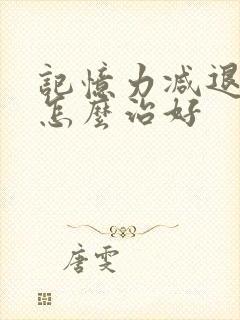 記憶力減退
怎麼治好
唐雯